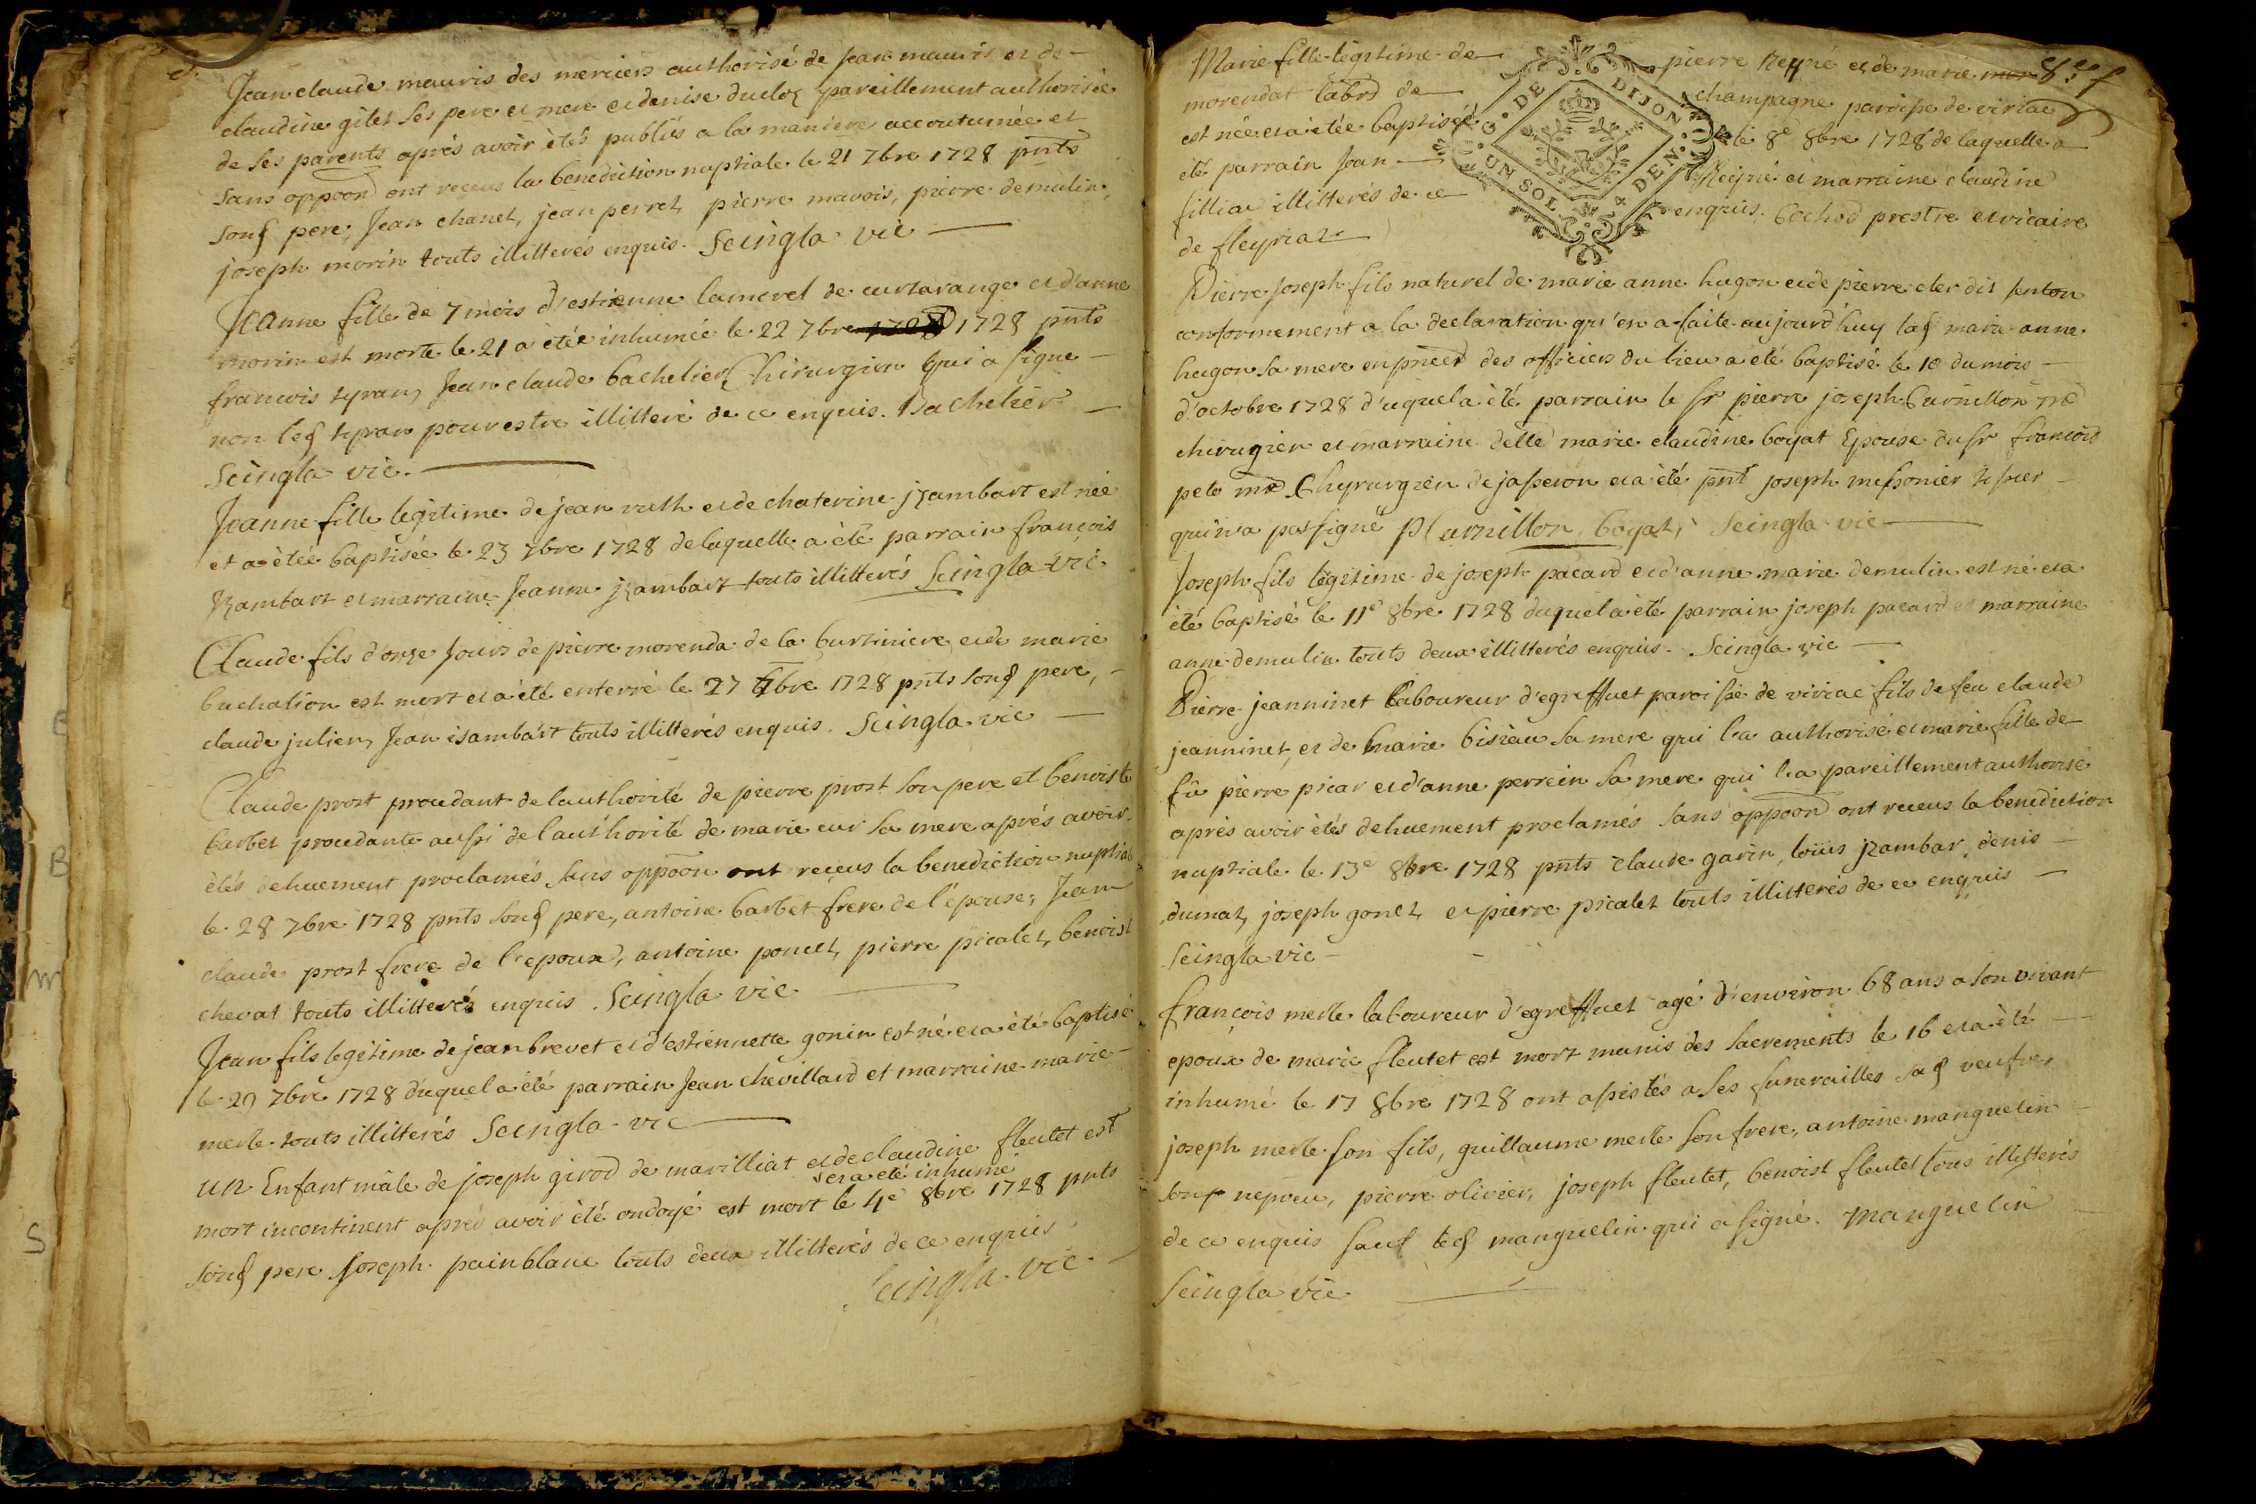 Jean claude mauris des merciers authorisé de jean mauris et de
claudine gilet ses pere et mere et denise ducloz pareillement authorisée
de ses parents aprés avoir étés publiés a la maniere accoutumée et
sans oppoon ont receus la benediction nuptiale le 21 7bre 1728 pnts
sonf pere, Jean chanel, jean perret, pierre mavois, pierre demulin,
joseph morin touts illitterés enquis. Seingla vic
Jeanne fille de 7 mois d'estienne lamerel de curtarange et d'anne
morin est morte le 21 a étée inhumée le 22 7bre 1728 pnts
francois tyran, Jean claude bachelier Chirurgien qui a signe
non led tyran pour estre illitteré de ce enquis. Bachelier
Seingla vic.
Jeanne fille legitime de jean ruth et de chaterine jzambart est née
et a étée baptisée le 23 7bre 1728 de laquelle a été parrain françois
jzambart et marraine Jeanne jzambart touts illitterés Seingla vic
Claude fils d'onze jours de pierre morenda de la burtiniere et de marie
buchalion est mort et a été enterré le 27 7bre 1728 pnts sonf pere,
claude julien, Jean isambart touts illitterés enquis. Seingla vic
Claude prost procedant de lauthorité de pierre prost son pere et benoiste
barbet procedante aussi de l'authorité de marie cur sa mere aprés avoir
étés dehuement proclamés sans oppoon ont receus la benediction nuptiale
le 28 7bre 1728 pnts sonf pere, antoine barbet frere de l'épouse, Jean
claude prost frere de l'epoux, antoine poncet, pierre picalet, benoist
chevat touts illitterés enquis. Seingla vic
Jean fils legitime de jean brevet et d'estiennette gonin est né et a été baptisé
le 29 7bre 1728 duquel a été parrain Jean chevillard et marraine marie
merle touts illitterés Seingla vic
un Enfant mâle de joseph girod de marilliat et de claudine fleutet est
et a été inhumé
mort incontinent aprés avoir été ondoyé est mort le 4e 8bre 1728 pnts
sonf pere Joseph painblanc touts deux illitterés de ce enquis
Seingla vic.
Marie fille legitime de pierre Reyné et de marie
morendat labrd de champagne paroisse de viriac
est née et a étée baptisée le 8e 8bre 1728 de laquelle a
été parrain Jean Reyné et marraine claudine
filliac illitterés de ce enquis. Cochod prestre et vicaire
de fleyriaz
G. DE DIJON
UN SOL 4 DEN.
Pierre Joseph fils naturel de marie anne hugon et de pierre cler dit
conformement a la declaration qu'en a faite aujourd'huy lad marie anne
hugon sa mere en pnced des officiers du lieu a été baptisé le 10 du mois
d'octobre 1728 d'uquel a été parrain le sr pierre joseph Carnillon me
chirugien et marraine delle marie claudine boyat Epouse du sr francois
peto me Chyrurgien de jasseron et a été pnt joseph messonier tissier
qui n'a pas signé PCarnillon, boyat, Seingla vic
Joseph fils legitime de joseph pacard et d'anne marie demulin est né et a
été baptisé le 11e 8bre 1728 duquel a été parrain joseph pacard et marraine
anne demulin touts deux illitterés enquis. Seingla vic
Pierre jeanninet laboureur d'egreffuet paroisse de viriac fils de feu claude
jeanninet, et de marie bisiau sa mere qui l'a authorisé et marie fille de
fu pierre picar et d'anne perrein sa mere qui l'a pareillement authorisé
aprés avoir étés dehuement proclamés sans oppoon ont receus la benediction
nuptiale le 13e 8bre 1728 pnts claude garin, loüis jzambar, denis
dumat, joseph gonet, et pierre picalet touts illitterés de ce enquis
Seingla vic
françois merle laboureur d'egreffuet agé d'environ 68 ans a son vivant
epoux de marie fleutet est mort munis des sacrements le 16 et a été
inhumé le 17 8bre 1728 ont assistés a ses funerailles sad veufve
joseph merle son fils, guillaume merle son frere, antoine manguelin
son nepveu, pierre olivier, joseph fleutet, benoist fleutet tous illitterés
de ce enquis sauf led manguelin qui a signé. manguelin
Seingla vic